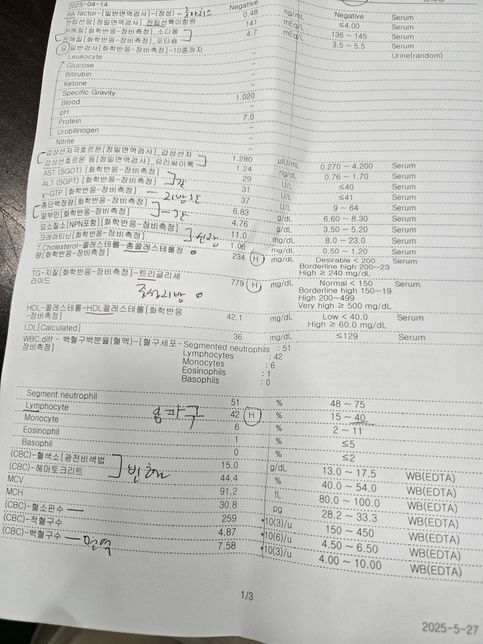 2025-04-14
RA factor-[일반면역검사]-(정성) Negative Negative Serum
전립선암[정밀면역검사]_전립선특이항원 0.48 ng/mL ≤4.00 Serum
전해질[화학반응-장비측정]_소디움 141 mEq/L 136 ~ 145 Serum
전해질[화학반응-장비측정]_포타슘 4.7 mEq/L 3.5 ~ 5.5 Serum
요 일반검사[화학반응-장비측정]-10종까지 Urine(random)
Leukocyte –
Glucose –
Bilirubin –
Ketone –
Specific Gravity 1.020
Blood –
pH 7.0
Protein –
Urobilinogen –
Nitrite –
갑상선자극호르몬[정밀면역검사]_갑상선자 1.280 μIU/mL 0.270 ~ 4.200 Serum
갑상선호르몬 등[정밀면역검사]_유리싸이록 1.24 ng/dL 0.76 ~ 1.70 Serum
AST (SGOT) [화학반응-장비측정] 29 U/L ≤40 Serum
ALT (SGPT) [화학반응-장비측정] 간 31 U/L ≤41 Serum
γ-GTP [화학반응-장비측정] 37 U/L 9 ~ 64 Serum
총단백정량[화학반응-장비측정] 6.83 g/dL 6.60 ~ 8.30 Serum
알부민[화학반응-장비측정] 4.76 g/dL 3.50 ~ 5.20 Serum
요소질소[NPN포함][화학반응-장비측정] 11.0 mg/dL 8.0 ~ 23.0 Serum
크레아티닌[화학반응-장비측정] 신장 1.06 mg/dL 0.50 ~ 1.20 Serum
T.Cholesterol-콜레스테롤-총콜레스테롤정 234 H mg/dL Desirable < 200 Serum
량[화학반응-장비측정] Borderline high 200~23
High ≥ 240 mg/dL
TG-지질[화학반응-장비측정]-트리글리세 779 H mg/dL Normal < 150 Serum
라이드 Borderline high 150~19
중성지방 High 200~499
Very high ≥ 500 mg/dL
HDL-콜레스테롤-HDL콜레스테롤[화학반응 42.1 mg/dL Low < 40.0 Serum
-장비측정] High ≥ 60.0 mg/dL
LDL[Calculated] 36 mg/dL ≤129 Serum
WBC.diff - 백혈구백분율(혈액)-[혈구세포-Segmented neutrophils : 51
장비측정] Lymphocytes : 42
Monocytes : 6
Eosinophils : 1
Basophils : 0
Segment neutrophil 51 % 48 ~ 75
Lymphocyte 42 H % 15 ~ 40
Monocyte 6 % 2 ~ 11
Eosinophil 1 % ≤5
Basophil 0 % ≤2
(CBC)-혈색소[광전비색법 15.0 g/dL 13.0 ~ 17.5 WB(EDTA)
(CBC)-헤마토크리트 빈혈 44.4 % 40.0 ~ 54.0 WB(EDTA)
MCV 91.2 fL 80.0 ~ 100.0 WB(EDTA)
MCH 30.8 pg 28.2 ~ 33.3 WB(EDTA)
(CBC)-혈소판수 259 *10(3)/u 150 ~ 450 WB(EDTA)
(CBC)-적혈구수 4.87 *10(6)/u 4.50 ~ 6.50 WB(EDTA)
(CBC)-백혈구수 면역 7.58 *10(3)/u 4.00 ~ 10.00 WB(EDTA)
1/3
2025-5-27